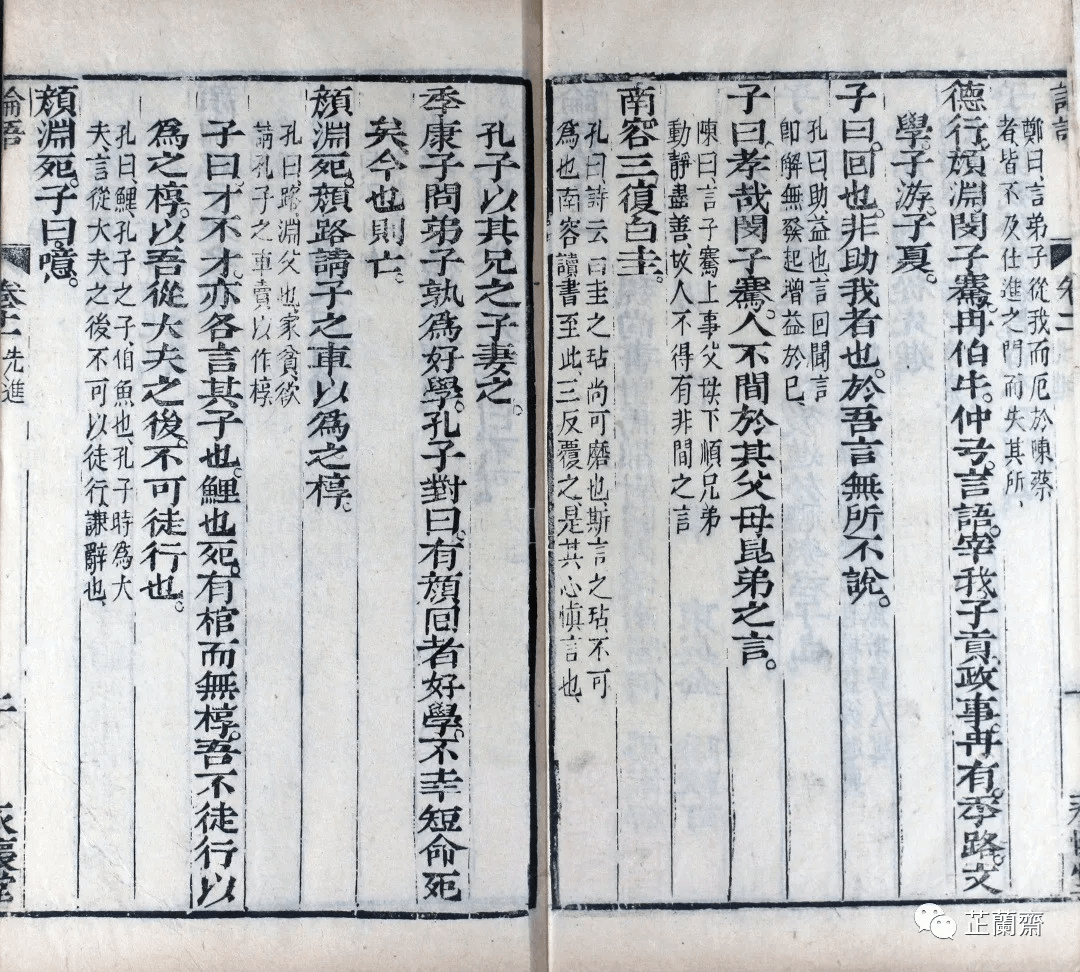 論語
卷十一
鄭曰言弟子從我而厄於陳蔡
者皆不及仕進之門而失其所
德行顏淵閔子騫冉伯牛。仲弓。言語。宰我子貢政事。冉有。季路。文
學。子游。子夏。
子曰。回也。非助我者也。於吾言無所不說。
孔曰助益也言回聞言
即解無發起增益於巳
子曰。孝哉閔子騫。人不間於其父母昆弟之言。
陳曰言子騫上事父母下順兄弟
動靜盡善故人不得有非間之言
南容三復白圭。
孔曰詩云白圭之玷尚可磨也斯言之玷不可
為也南容讀書至此三反覆之是其心慎言也
孔子以其兄之子妻之。
季康子問弟子孰為好學。孔子對曰。有顏回者好學。不幸短命死
矣。今也則亡。
顏淵死。顏路請子之車以為之椁。
孔曰路淵父也家貧欲
請孔子之車賣以作椁
子曰。才不才。亦各言其子也。鯉也死。有棺而無椁。吾不徒行以
為之椁。以吾從大夫之後。不可徒行也。
孔曰鯉孔子之子伯魚也孔子時為大
夫言從大夫之後不可以徒行謙辭也
顏淵死。子曰。噫。
論語
卷十一
先進
二
永懷堂
芷蘭齋